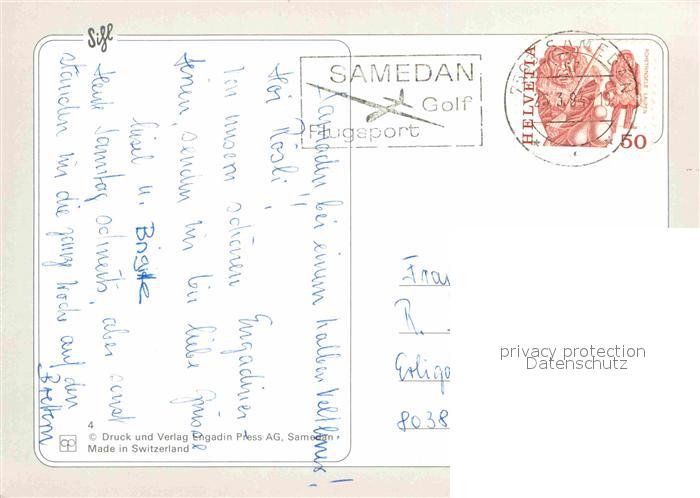 Sifl
SAMEDAN
Golf
Flugsport
SAMEDAN
HELVETIA
50
Samedan, bei einem halben Veltliner!
Hoi Rösli!
Von unsern schönen Engadiner-
ferien, senden wir dir liebe Grüsse
Lisel u. Brigitte
Heute Samstag schneits, aber sonst
standen wir die ganze Woche auf den
Brettern
Frau
R.
8038
privacy protection
Datenschutz
4
© Druck und Verlag Engadin Press AG, Samedan
Made in Switzerland